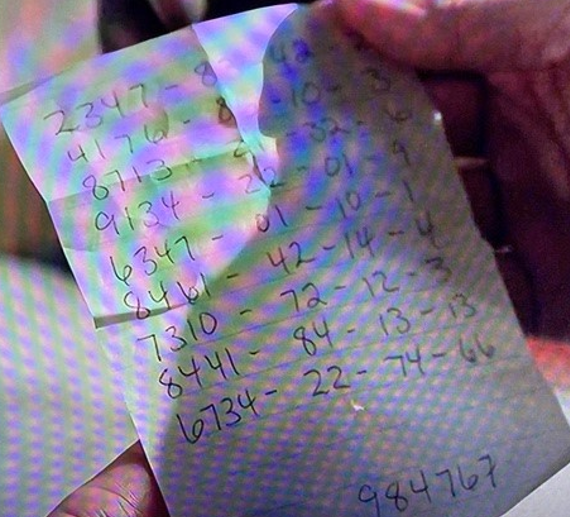 2347 - 8 42 -
4176 - 8 -10- 3
8713 - 21 -32- 6
9134 - 22 -01 - 9
6347 - 01 - 10 - 1
8461 - 42 -14 - 4
7310 - 72 -12 - 3
8441 - 84 - 13 - 13
6734 - 22 - 74 - 66
984767